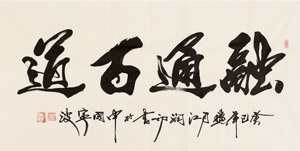 融通百道
癸巳年 月江 書於中國寧波